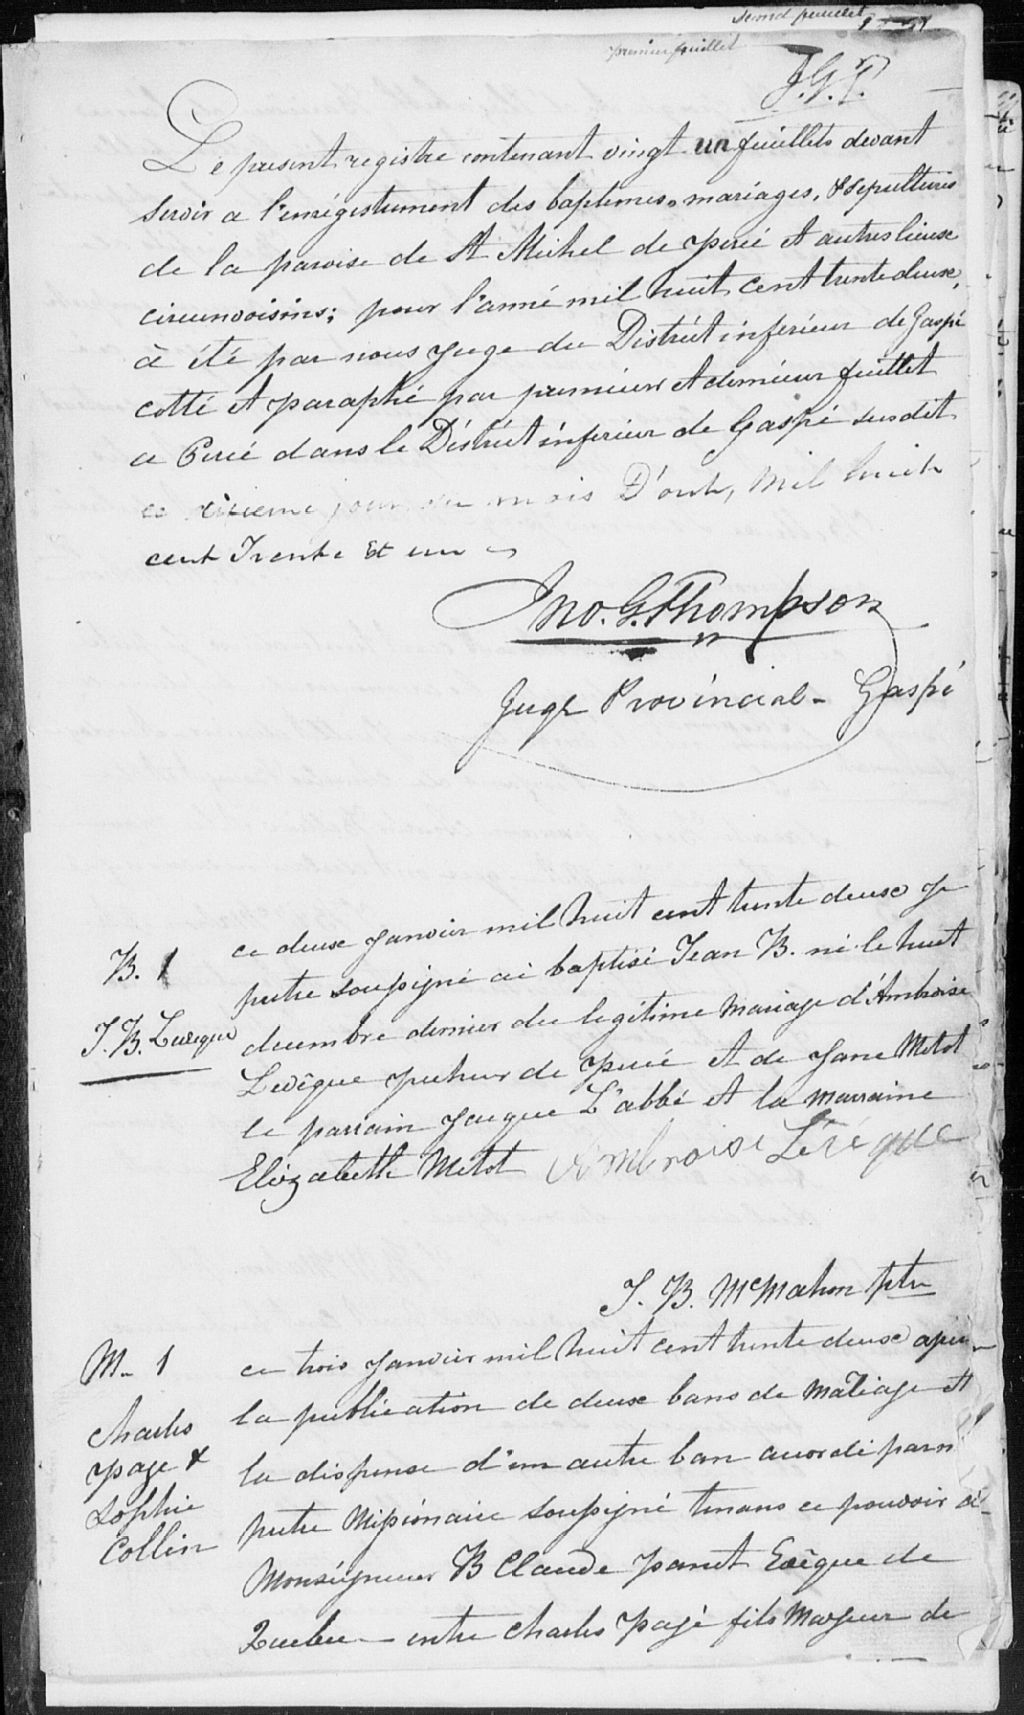 second feuillet
premier feuillet
J.G.T.
Le present registre contenant vingt un feuillets devant
servir a l'enrégistrement des baptemes, mariages, & sepultures
de la paroise de St Michel de percé et autres lieux
circonvoisins; pour l'anné mil huit cent trente deuxe,
à été par nous juge du District inferieur de Gaspé
cotté et paraphé par premier et dernier feuillet
a Percé dans le District inferieur de Gaspé susdit
ce jour du mois D'out, Mil huit
cent Trente et un
Jno. G. Thompson
Juge Provincial - Gaspé
B. 1
J. B. Leveque
ce deuxe janvier mil huit cent trente deuxe je
pretre soussigné ai baptisé Jean B. né le huit
decembre dernier du legitime mariage d'Ambroise
Levêque pecheur de percé et de Jane Metot
le parrain Jacque L'abbé et la marraine
Elizabeth Metot Ambroise Léveque
J. B. McMahon ptre
M. 1
Charles
page &
Sophie
Collin
ce trois janvier mil huit cent trente deuxe apres
la publication de deuxe bans de Mariage et
la dispense d'un autre ban accordé par n
pretre Missionaire soussigné tenans ce pouvoir de
Monséigneur B Claude panet Evêque de
Quebec - entre Charles pagé fils Majeur de